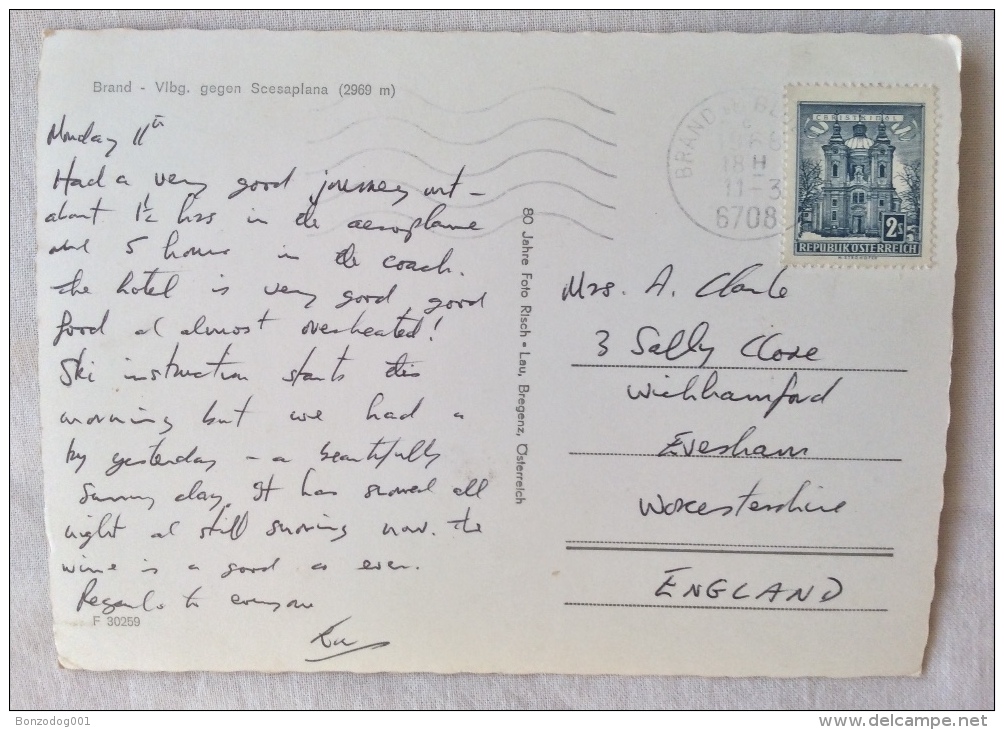 Brand - Vlbg. gegen Scesaplana (2969 m)
Monday 11th
Had a very good journey out -
about 1½ hrs in the aeroplane
and 5 hours in the coach.
The hotel is very good good
food and almost overheated!
Ski instruction starts this
morning but we had a
try yesterday - a beautifully
sunny day. It has snowed all
night and still snowing now. The
wine is as good as ever.
Regards to everyone
F 30259
80 Jahre Foto Risch - Lau, Bregenz, Österreich
BRAND
18 H
11-3
6708
CHRISTKINDL
2s
REPUBLIK ÖSTERREICH
Mrs. A. Clarke
3 Sally Close
Wickhamford
Evesham
Worcestershire
ENGLAND
Bonzodog001
delcampe.net